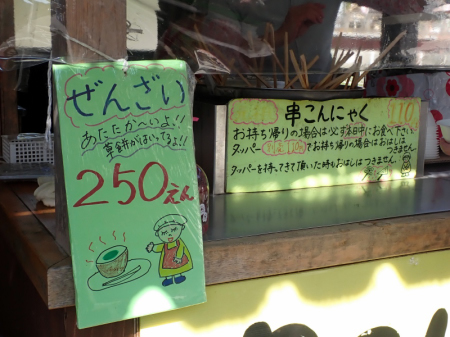 ぜんざい
あたたか〜いよ!!
草餅がはいってるよ!!
250えん
串こんにゃく
お持ち帰りの場合は必ず本日中にお食べ下さい
タッパー
でお持ち帰りの場合はおはしは
つきません
タッパーを持ってきて頂いた時もおはしはつきません